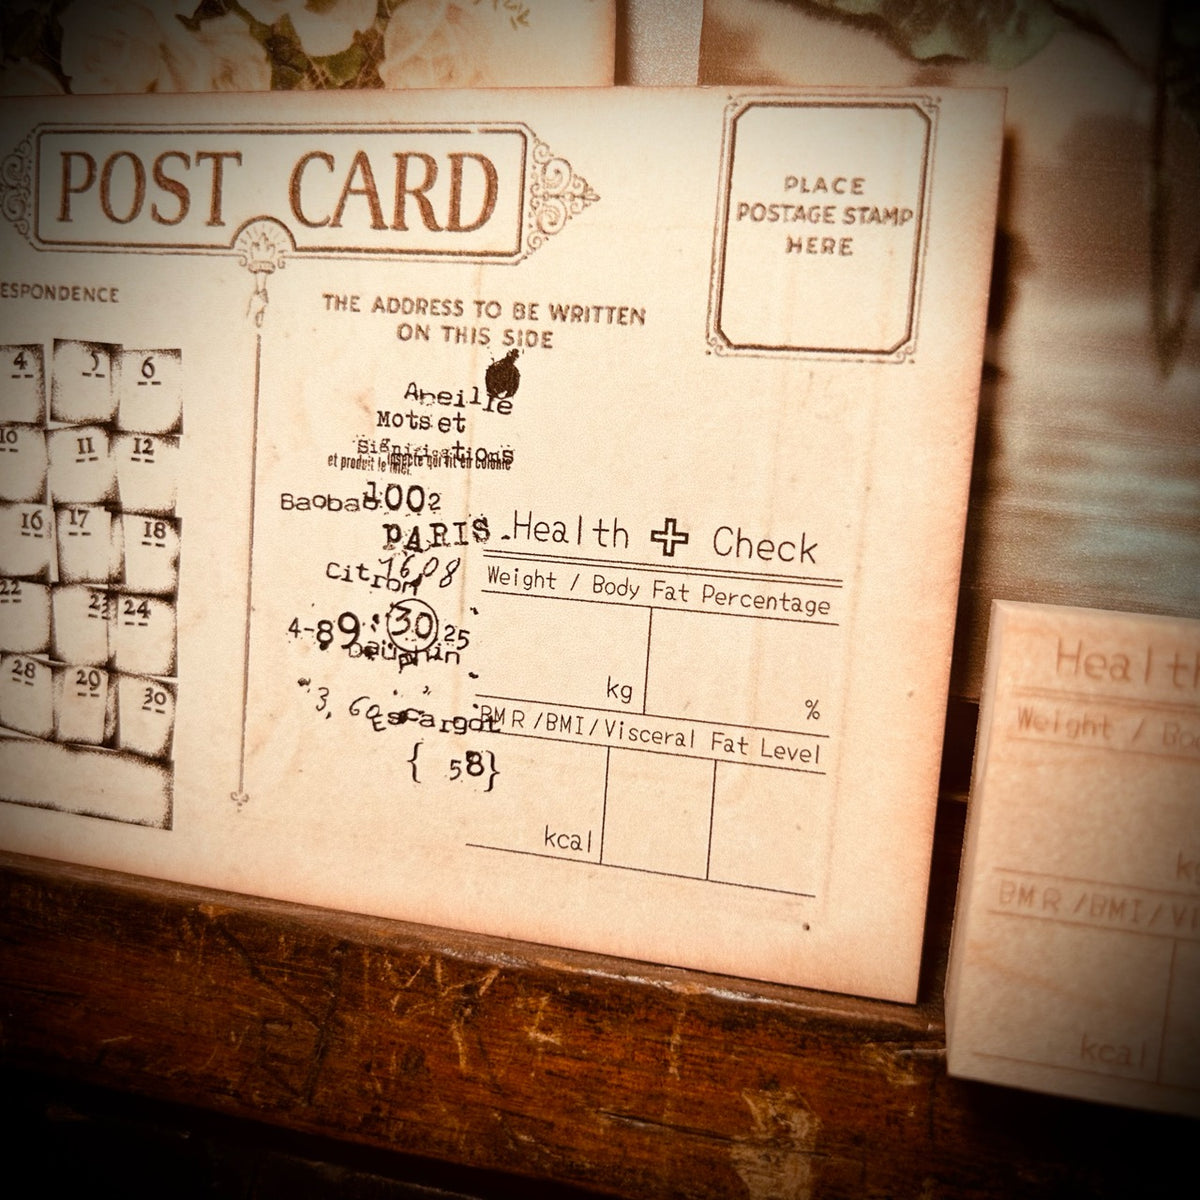 POST CARD
PLACE
POSTAGE STAMP
HERE
ESPONDENCE
THE ADDRESS TO BE WRITTEN
ON THIS SIDE
4 5 6
10 11 12
16 17 18
22 23 24
28 29 30
Abeille
Mots et
Significations
insecte qui vit en colonie
et produit le miel.
Baobab 1002
PARIS.
Citron 1608
4-89: 30.25
Dauphin
3, 6
Escargot
{ 58}
Health Check
Weight / Body Fat Percentage
kg %
BMR/BMI/Visceral Fat Level
kcal
Health
Weight / Bo
kg
BMR/BMI/Vi
kcal